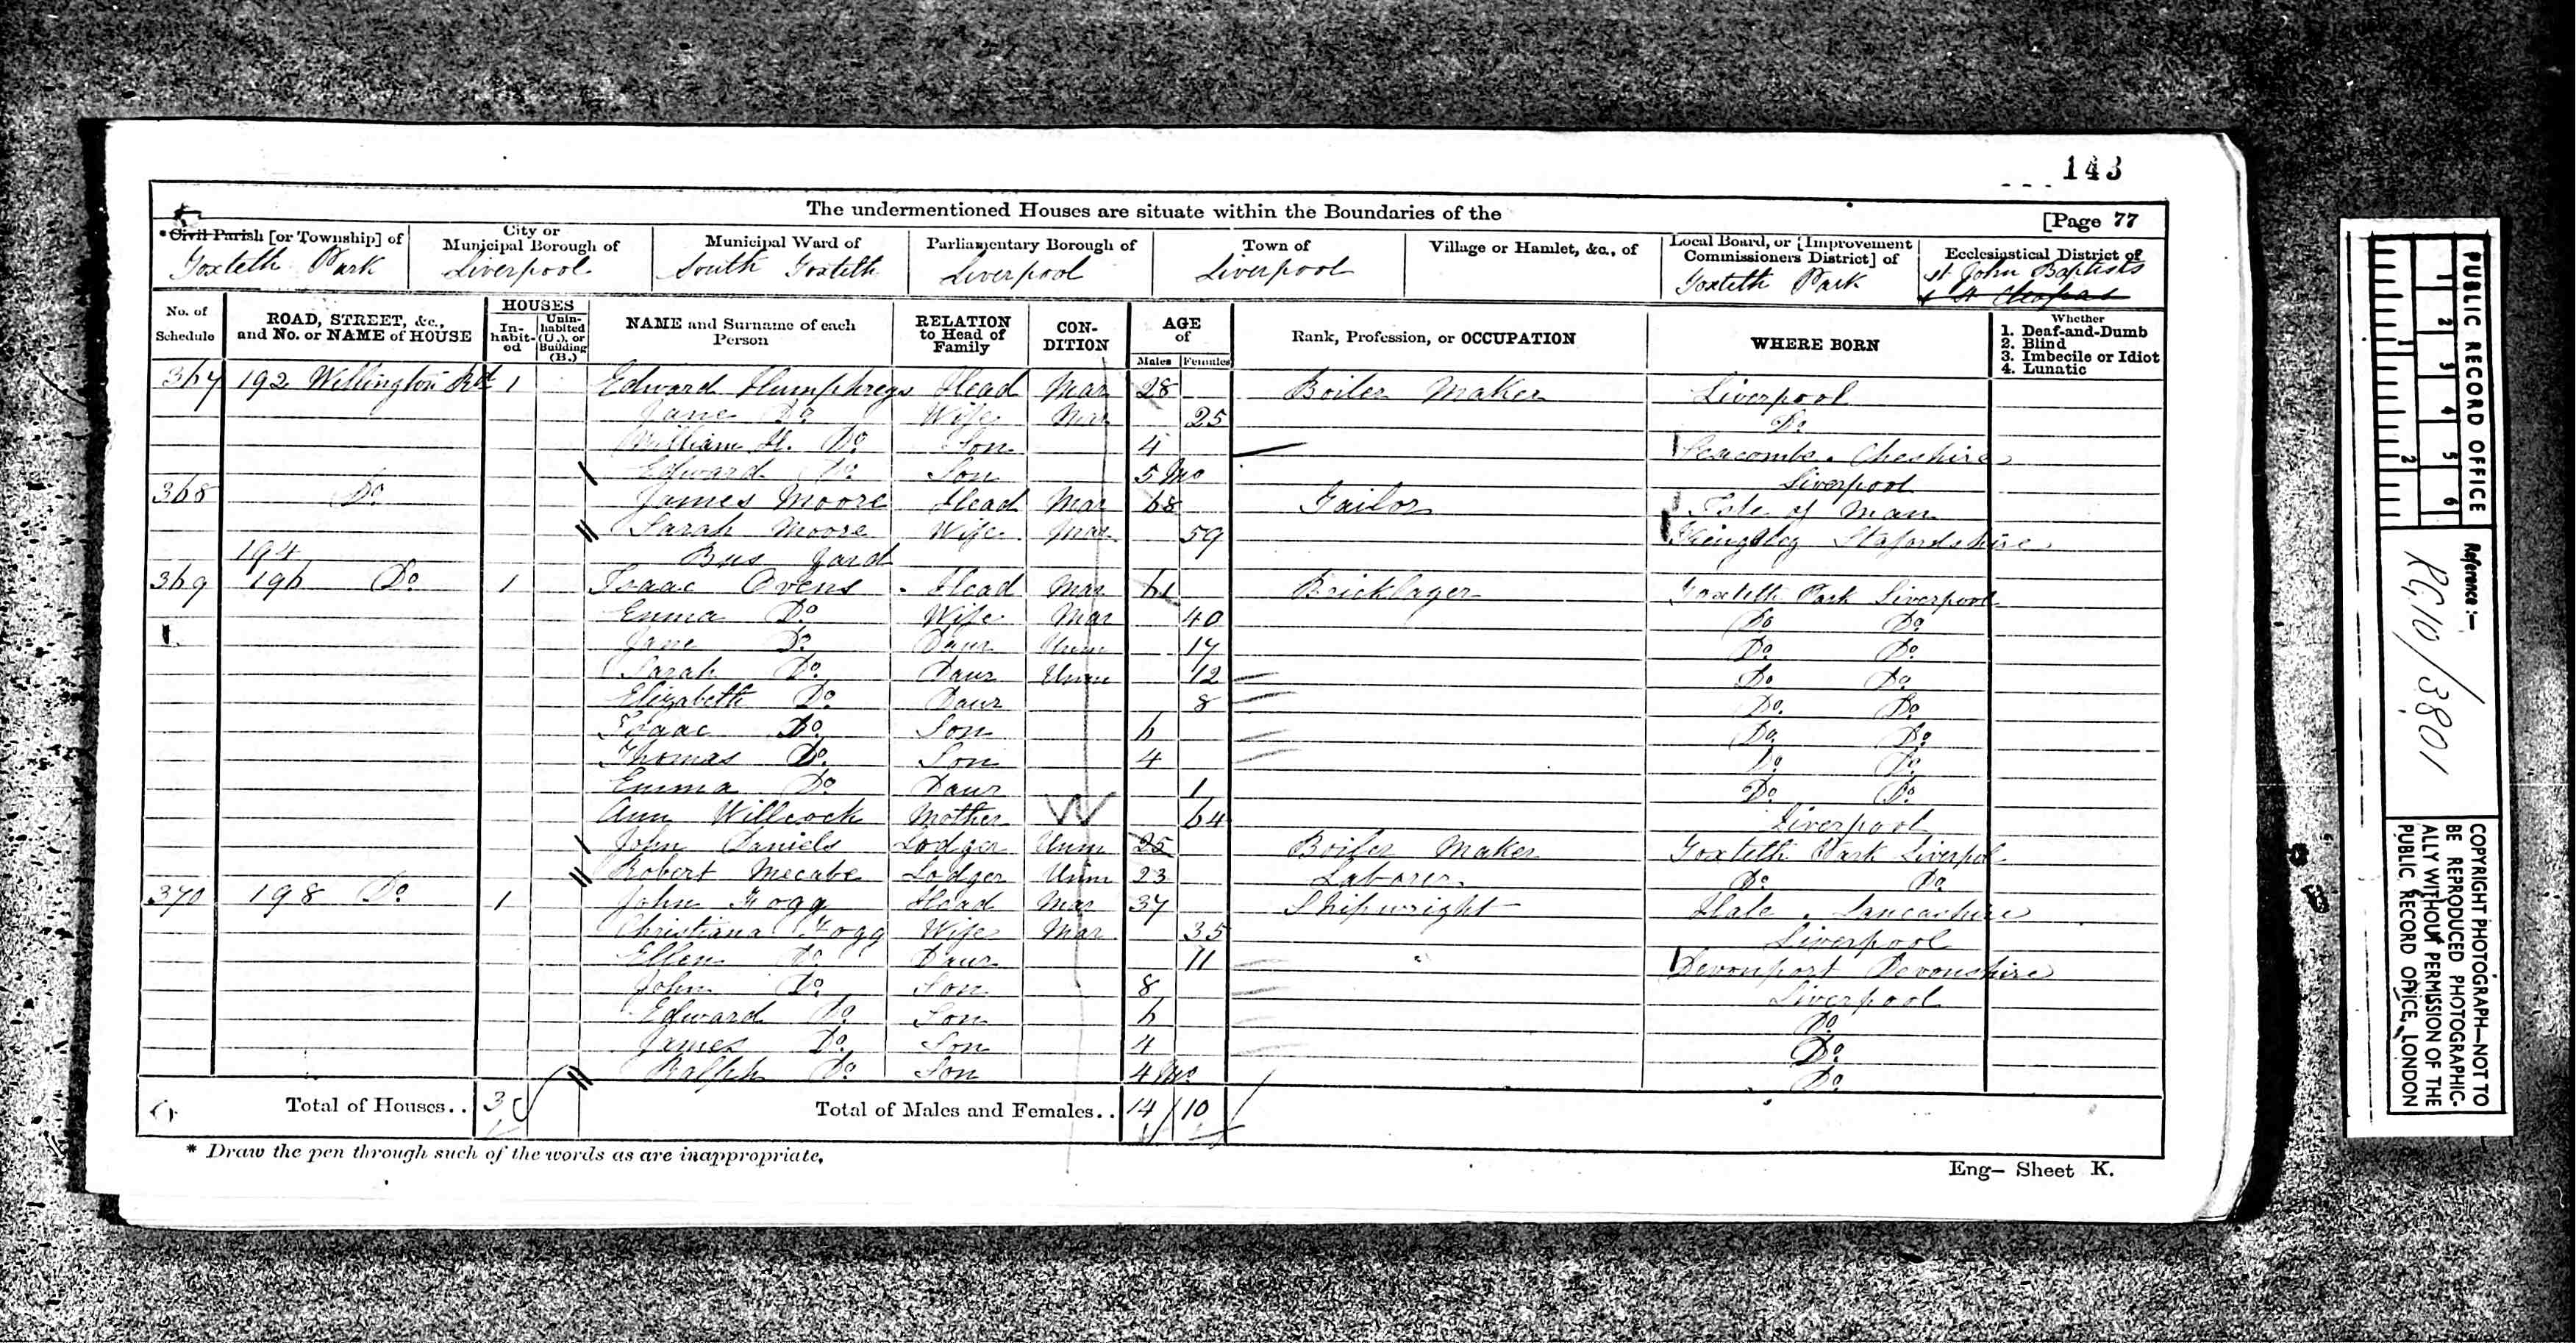 143
The undermentioned Houses are situate within the Boundaries of the
[Page 77
*Civil Parish [or Township] of
Toxteth Park
City or Municipal Borough of
Liverpool
Municipal Ward of
South Toxteth
Parliamentary Borough of
Liverpool
Town of
Liverpool
Village or Hamlet, &c., of
Local Board, or [Improvement Commissioners District] of
Toxteth Park
Ecclesiastical District of
St John Baptists
& St Cleopas
No. of Schedule
ROAD, STREET, &c., and No. or NAME of HOUSE
HOUSES
In-habit-ed
Unin-habited (U.), or Building (B.)
NAME and Surname of each Person
RELATION to Head of Family
CON-DITION
AGE of
Males
Females
Rank, Profession, or OCCUPATION
WHERE BORN
Whether
1. Deaf-and-Dumb
2. Blind
3. Imbecile or Idiot
4. Lunatic
367 192 Wellington Rd 1 Edward Humphreys Head Mar 28 Boiler Maker Liverpool
Jane Do Wife Mar 25 Do
William H. Do Son 4 Seacombe. Cheshire
Edward Do Son 5 Mo Liverpool
368 Do James Moore Head Mar 68 Tailor Isle of Man
Sarah Moore Wife Mar 59 Kingsley Stafordshire
194 Bus Yard
369 196 Do 1 Isaac Ovens Head Mar 41 Bricklayer Toxteth Park Liverpool
Emma Do Wife Mar 40 Do Do
Jane Do Daur Unm 17 Do Do
Sarah Do Daur Unm 12 Do Do
Elizabeth Do Daur 8 Do Do
Isaac Do Son 6 Do Do
Thomas Do Son 4 Do Do
Emma Do Daur 1 Do Do
Ann Willcock Mother W 64 Liverpool
John Daniels Lodger Unm 25 Boiler Maker Toxteth Park Liverpol
Robert Mecabe Lodger Unm 23 Laborer. Do Do
370 198 Do 1 John Fogg Head Mar 37 Shipwright Hale. Lancashire
Christiana Fogg Wife Mar 35 Liverpool
Ellen Do Daur 11 Devonport Devonshire
John Do Son 8 Liverpool
Edward Do Son 6 Do
James Do Son 4 Do
Ralph Do Son 4 Mo Do
Total of Houses.. 3
Total of Males and Females.. 14 10
* Draw the pen through such of the words as are inappropriate.
Eng- Sheet K.
1 2 3 4 5 6
1 2
PUBLIC RECORD OFFICE
Reference :-
RG10/3801
COPYRIGHT PHOTOGRAPH—NOT TO
BE REPRODUCED PHOTOGRAPHIC-
ALLY WITHOUT PERMISSION OF THE
PUBLIC RECORD OFFICE, LONDON